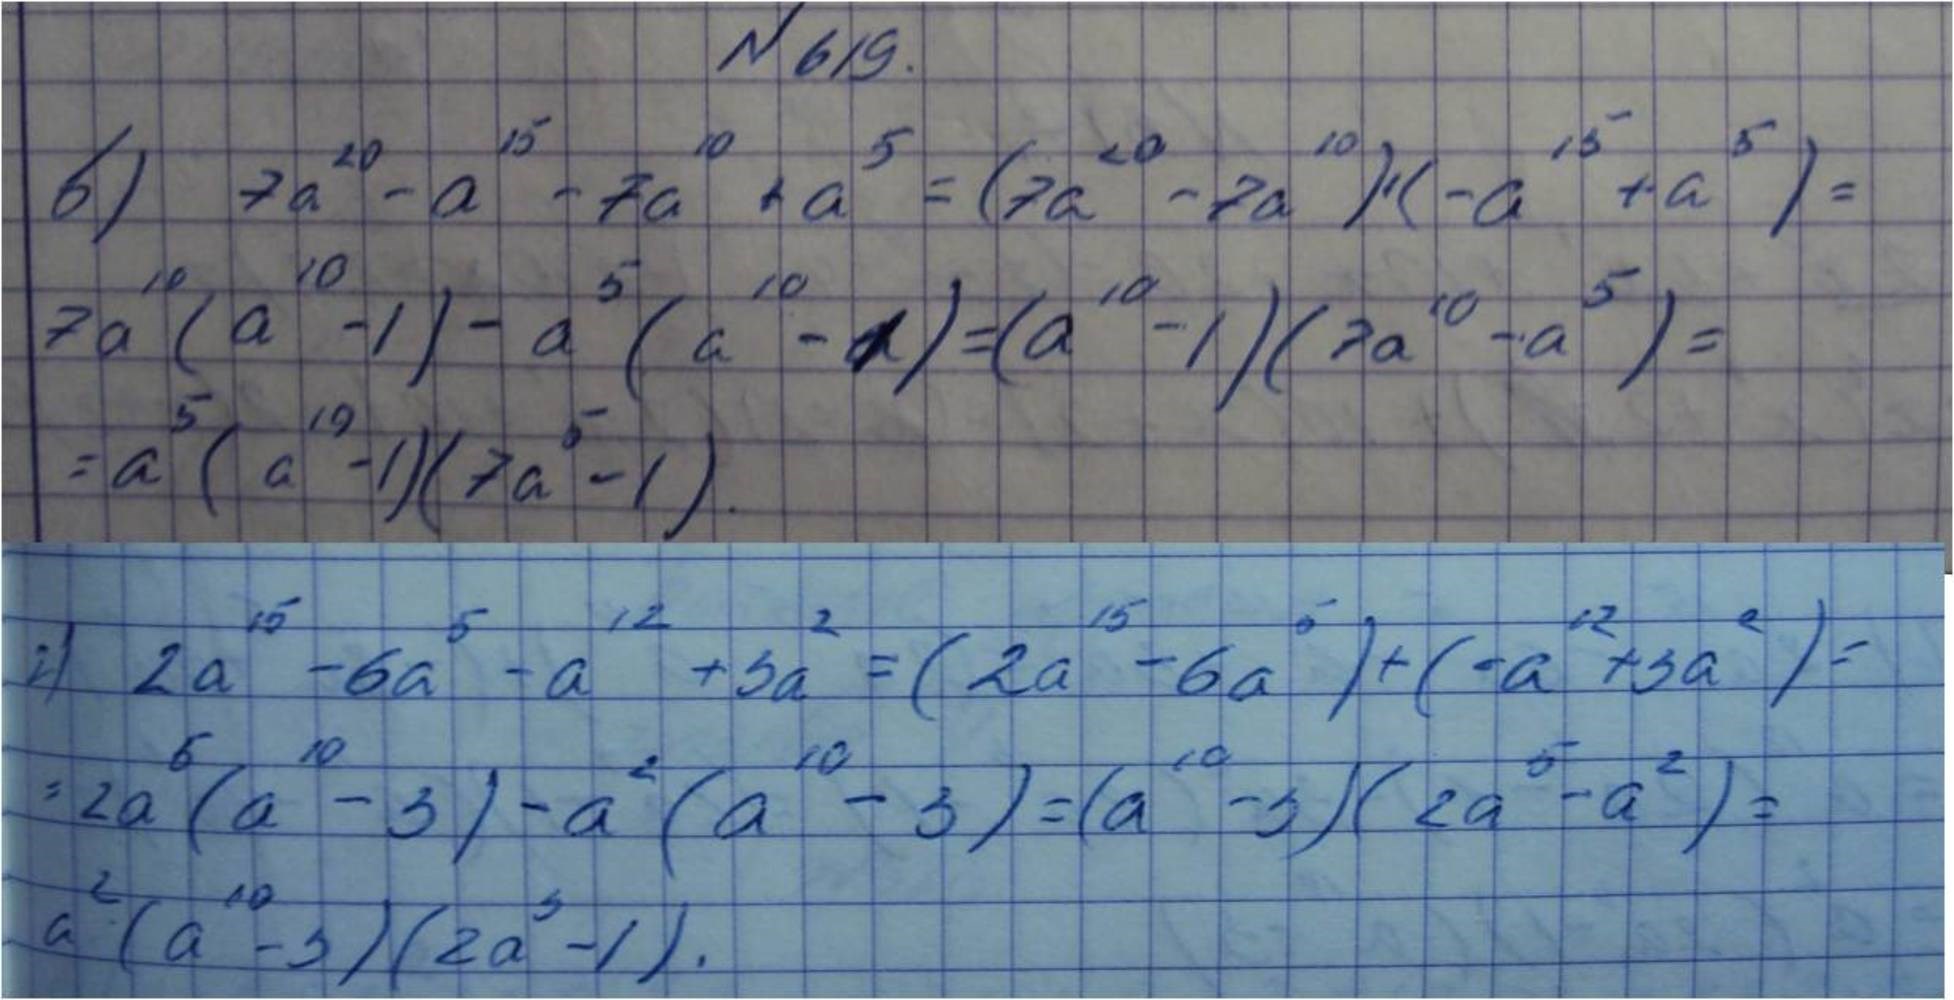 № 619.
б) 7a²⁰ - a¹⁵ - 7a¹⁰ + a⁵ = (7a²⁰ - 7a¹⁰) + (-a¹⁵ + a⁵) =
7a¹⁰(a¹⁰ - 1) - a⁵(a¹⁰ - 1) = (a¹⁰ - 1)(7a¹⁰ - a⁵) =
= a⁵(a¹⁰ - 1)(7a⁵ - 1).
г) 2a¹⁵ - 6a⁵ - a¹² + 3a² = (2a¹⁵ - 6a⁵) + (-a¹² + 3a²) =
= 2a⁵(a¹⁰ - 3) - a²(a¹⁰ - 3) = (a¹⁰ - 3)(2a⁵ - a²) =
a²(a¹⁰ - 3)(2a³ - 1).